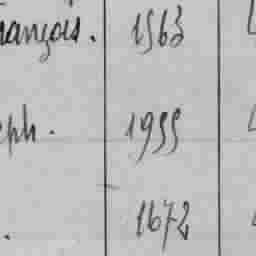 rançois. 1563
eph. 1955
. 1672